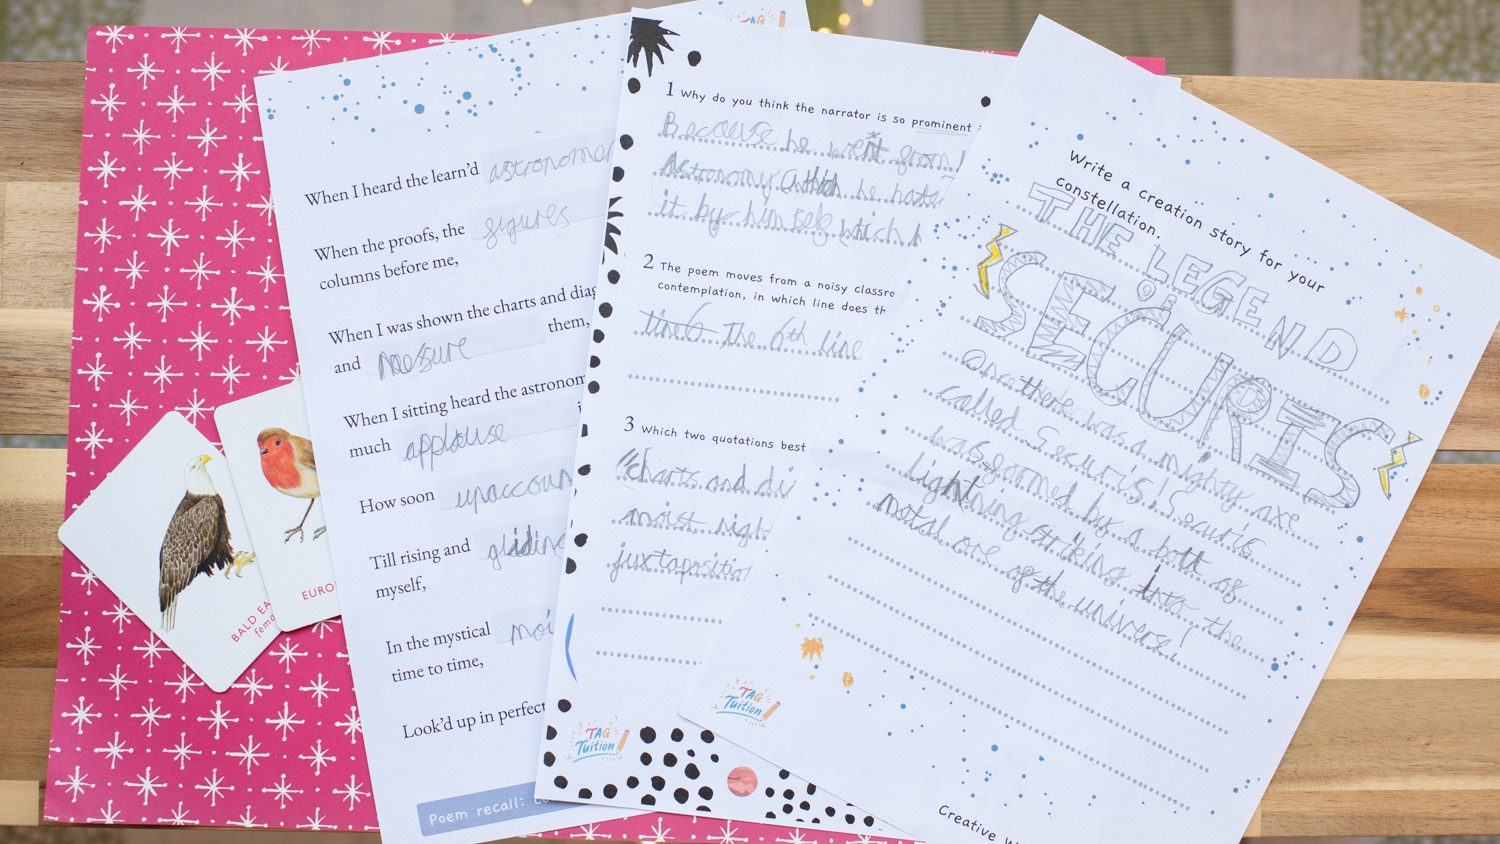 When I heard the learn'd astronomer
When the proofs, the figures
columns before me,
When I was shown the charts and diag
and measure them,
When I sitting heard the astronom
much applause i
How soon unaccoun
Till rising and gliding
myself,
In the mystical moi
time to time,
Look'd up in perfect
Poem recall:
TAG
1 Why do you think the narrator is so prominent
Because he went from
Astronomy he hate
it by him self which
2 The poem moves from a noisy classro
contemplation, in which line does th
line 6 The 6th line
3 Which two quotations best
"charts and di
moist nigh
juxtaposition
TAG
Tuition
Write a creation story for your
constellation.
THE LEGEND
OF
SECURIS
Once there was a mighty axe
called Securis! Securis
was formed by a bolt of
lightning striking into the
metal ore of the universe!
TAG
Tuition
Creative W
BALD EA
fema
EURO